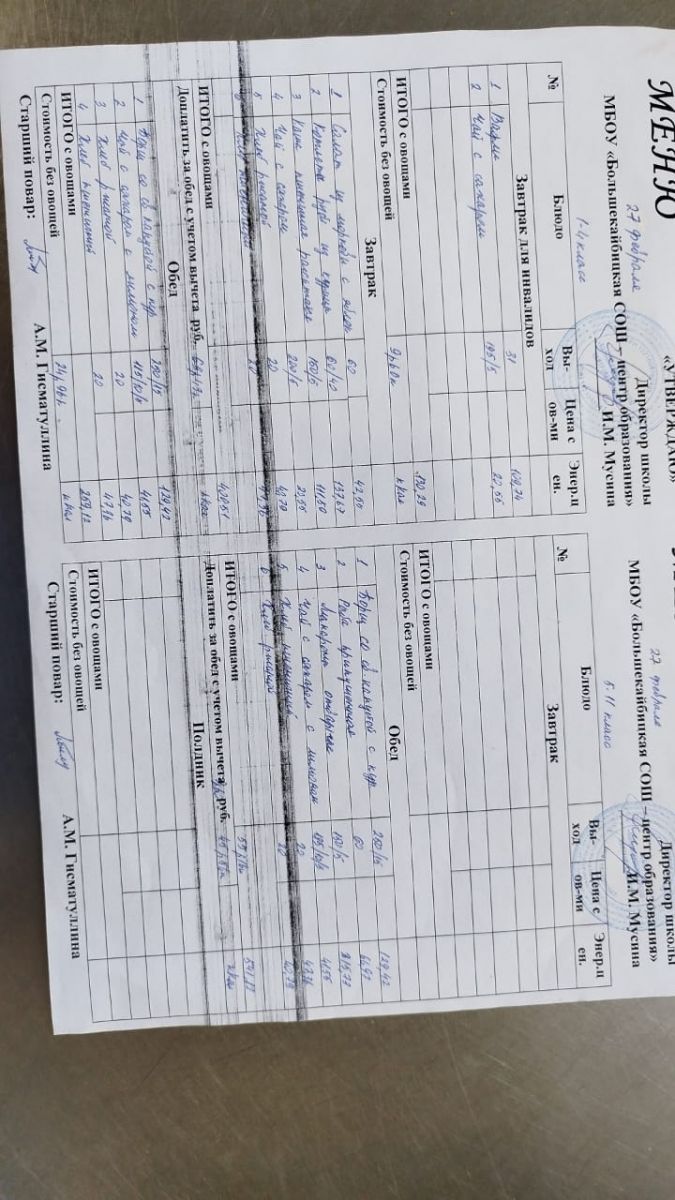 МЕНЮ
«УТВЕРЖДАЮ»
Директор школы
МБОУ «Большекайбицкая СОШ – центр образования»
27 февраля И.М. Мусина
1-4 класс
№ Блюдо Вы-ход Цена с ов-ми Энер.ц ен.
Завтрак для инвалидов
1 Вафли 31 109,74
2 Чай с сахаром 195/5 22,55
ИТОГО с овощами 132,29
Стоимость без овощей ккал
Завтрак
1 Салат из моркови с яблок 60 42,60
2 Котлета руб из курицы 137,67
3 Каша пшеничная рассыпчатая
4 Чай с сахаром 200/5
5 Хлеб ржаной 20
ИТОГО с овощами
Доплатить за обед с учетом вычета руб. ккал
Обед
1 Борщ со св капустой с кур 250/15 129,42
2 Чай с сахаром с лимоном 195/10/5 41,55
3 Хлеб ржаной 20 40,79
4 Хлеб пшеничный 20 47,36
ИТОГО с овощами 259,12
Стоимость без овощей ккал
Старший повар: А.М. Гисматуллина
Директор школы
МБОУ «Большекайбицкая СОШ – центр образования»
27 февраля И.М. Мусина
5-11 класс
№ Блюдо Вы-ход Цена с ов-ми Энер.ц ен.
Завтрак
ИТОГО с овощами
Стоимость без овощей
Обед
1 Борщ со св капустой с кур 250/15 129,42
2 Рыба припущенная 60
3 Макароны отварные 150/5
4 Чай с сахаром с лимоном 195/10/5 41,55
5 Хлеб пшеничный 20
6 Хлеб ржаной 20
ИТОГО с овощами
Доплатить за обед с учетом вычета руб. ккал
Полдник
ИТОГО с овощами
Стоимость без овощей
Старший повар: А.М. Гисматуллина